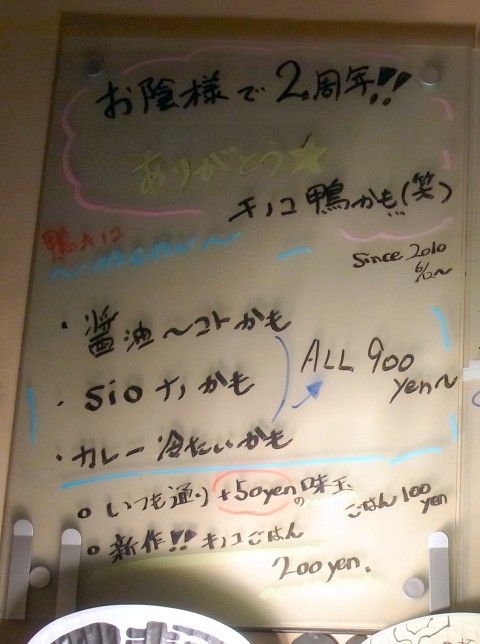 お陰様で2周年!!
ありがとう★
キノコ鴨かも!!(笑)
鴨キノコ
〜MENU〜
Since 2010
6/12〜
・醤油〜コトかも
・Sioナノかも
・カレー冷たいかも
ALL 900
yen〜
○いつも通り+50yenの味玉
ごはん100
yen
○新作!!キノコごはん
200yen.